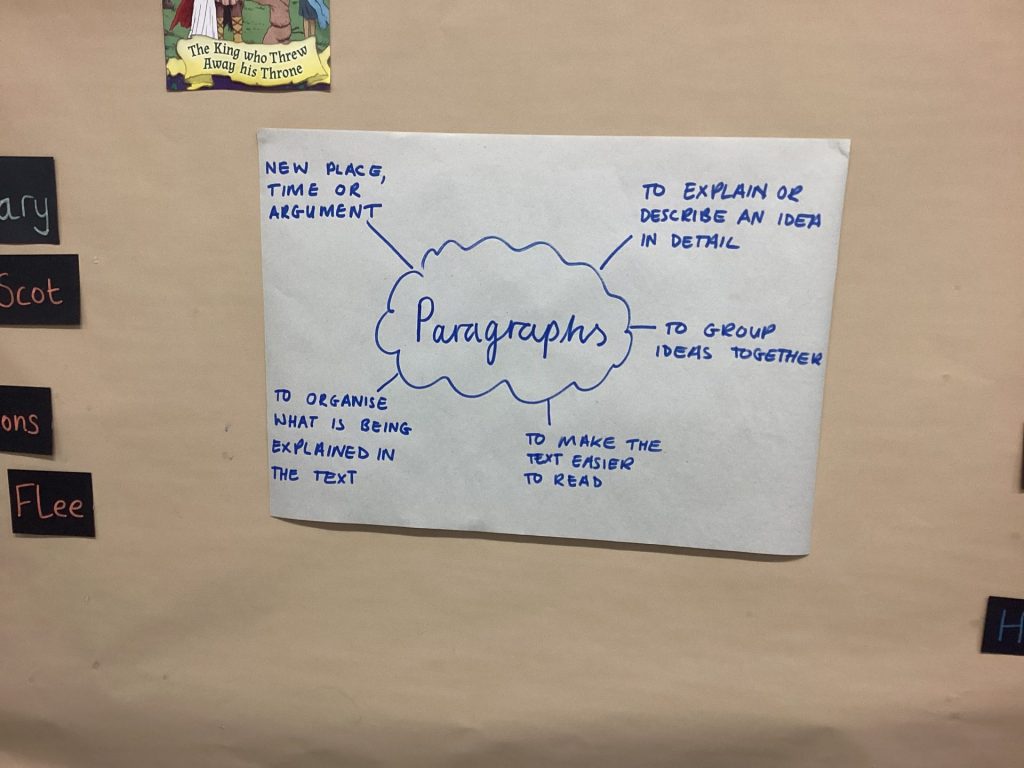 The King who Threw
Away his Throne
NEW PLACE,
TIME OR
ARGUMENT
TO EXPLAIN OR
DESCRIBE AN IDEA
IN DETAIL
Paragraphs
TO GROUP
IDEAS TOGETHER
TO ORGANISE
WHAT IS BEING
EXPLAINED IN
THE TEXT
TO MAKE THE
TEXT EASIER
TO READ
ary
Scot
ons
FLee
H